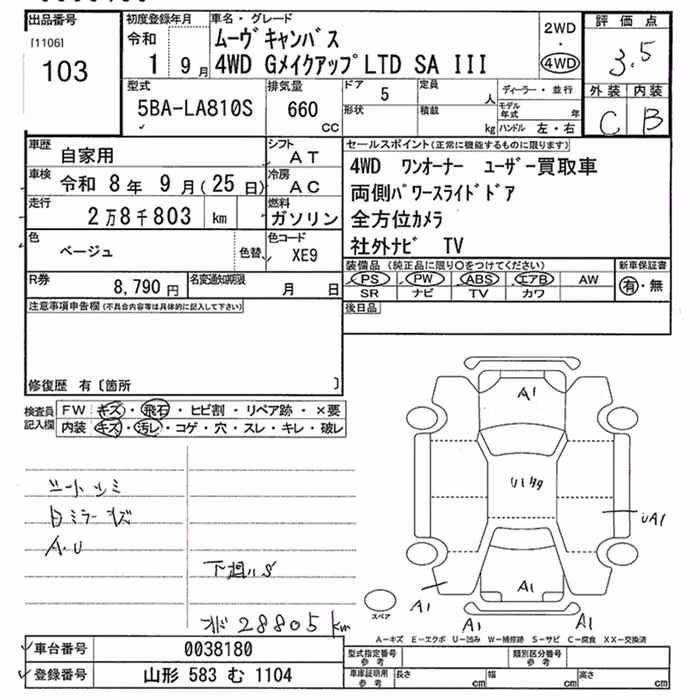 出品番号
[1106]
103
初度登録年月
令和
1 9月
車名・グレード
ムーヴキャンバス
4WD GメイクアップLTD SA III
2WD
・
4WD
評価点
3.5
外装 内装
C B
型式
5BA-LA810S
排気量
660
CC
ドア 5
定員 人
ディーラー・並行
形状
積載 kg
モデル年式 年
ハンドル 左・右
車歴 自家用
シフト AT
車検 令和 8年 9月(25日)
冷房 AC
走行 2万8千803 km
燃料 ガソリン
色 ベージュ
色替
色コード XE9
R券 8,790円
名変通知期限 月 日
セールスポイント(正常に機能するものに限ります)
4WD ワンオーナー ユーザー買取車
両側パワースライドドア
全方位カメラ
社外ナビ TV
装備品(純正品に限り○をつけてください)
PS PW ABS エアB AW
SR ナビ TV カワ
新車保証書
有・無
後日品
注意事項申告欄(不具合内容等は具体的に記入して下さい)
修復歴 有〔箇所 〕
検査員記入欄
FW キズ・飛石・ヒビ割・リペア跡・×要
内装 キズ・汚レ・コゲ・穴・スレ・キレ・破レ
シートシミ
ミラーキズ
A.U
下廻りS
28805km
A1
U1
UA1
A1
A1
A1
A1
スペア
A―キズ E―エクボ U―凹み W―補修跡 S―サビ C―腐食 XX―交換済
車台番号 0038180
登録番号 山形 583 む 1104
型式指定番号 参考
類別区分番号 参考
車庫証明用 参考
長さ cm
幅 cm
高さ cm